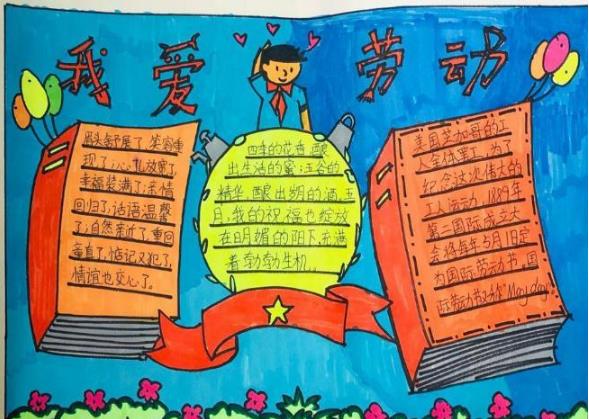 我爱劳动
出头部屋了,笑容重
现了,心儿放宽了
幸福装满了,亲情
回归了,话语温馨
了,自然亲近了,重回
童真了,惦记又犯了,
情谊也交心了。
四季的花香,酿
出生活的蜜;五谷的
精华,酿出绵的酒,五
月,我的祝福也绽放
在明媚的阳下,充满
着勃勃生机。
美国芝加哥的工
人全体罢工,为了
纪念这次伟大的
工人运动,1889年
第二国际成立大
会将每年5月1日定
为国际劳动节,国
际劳动节又称"May day"